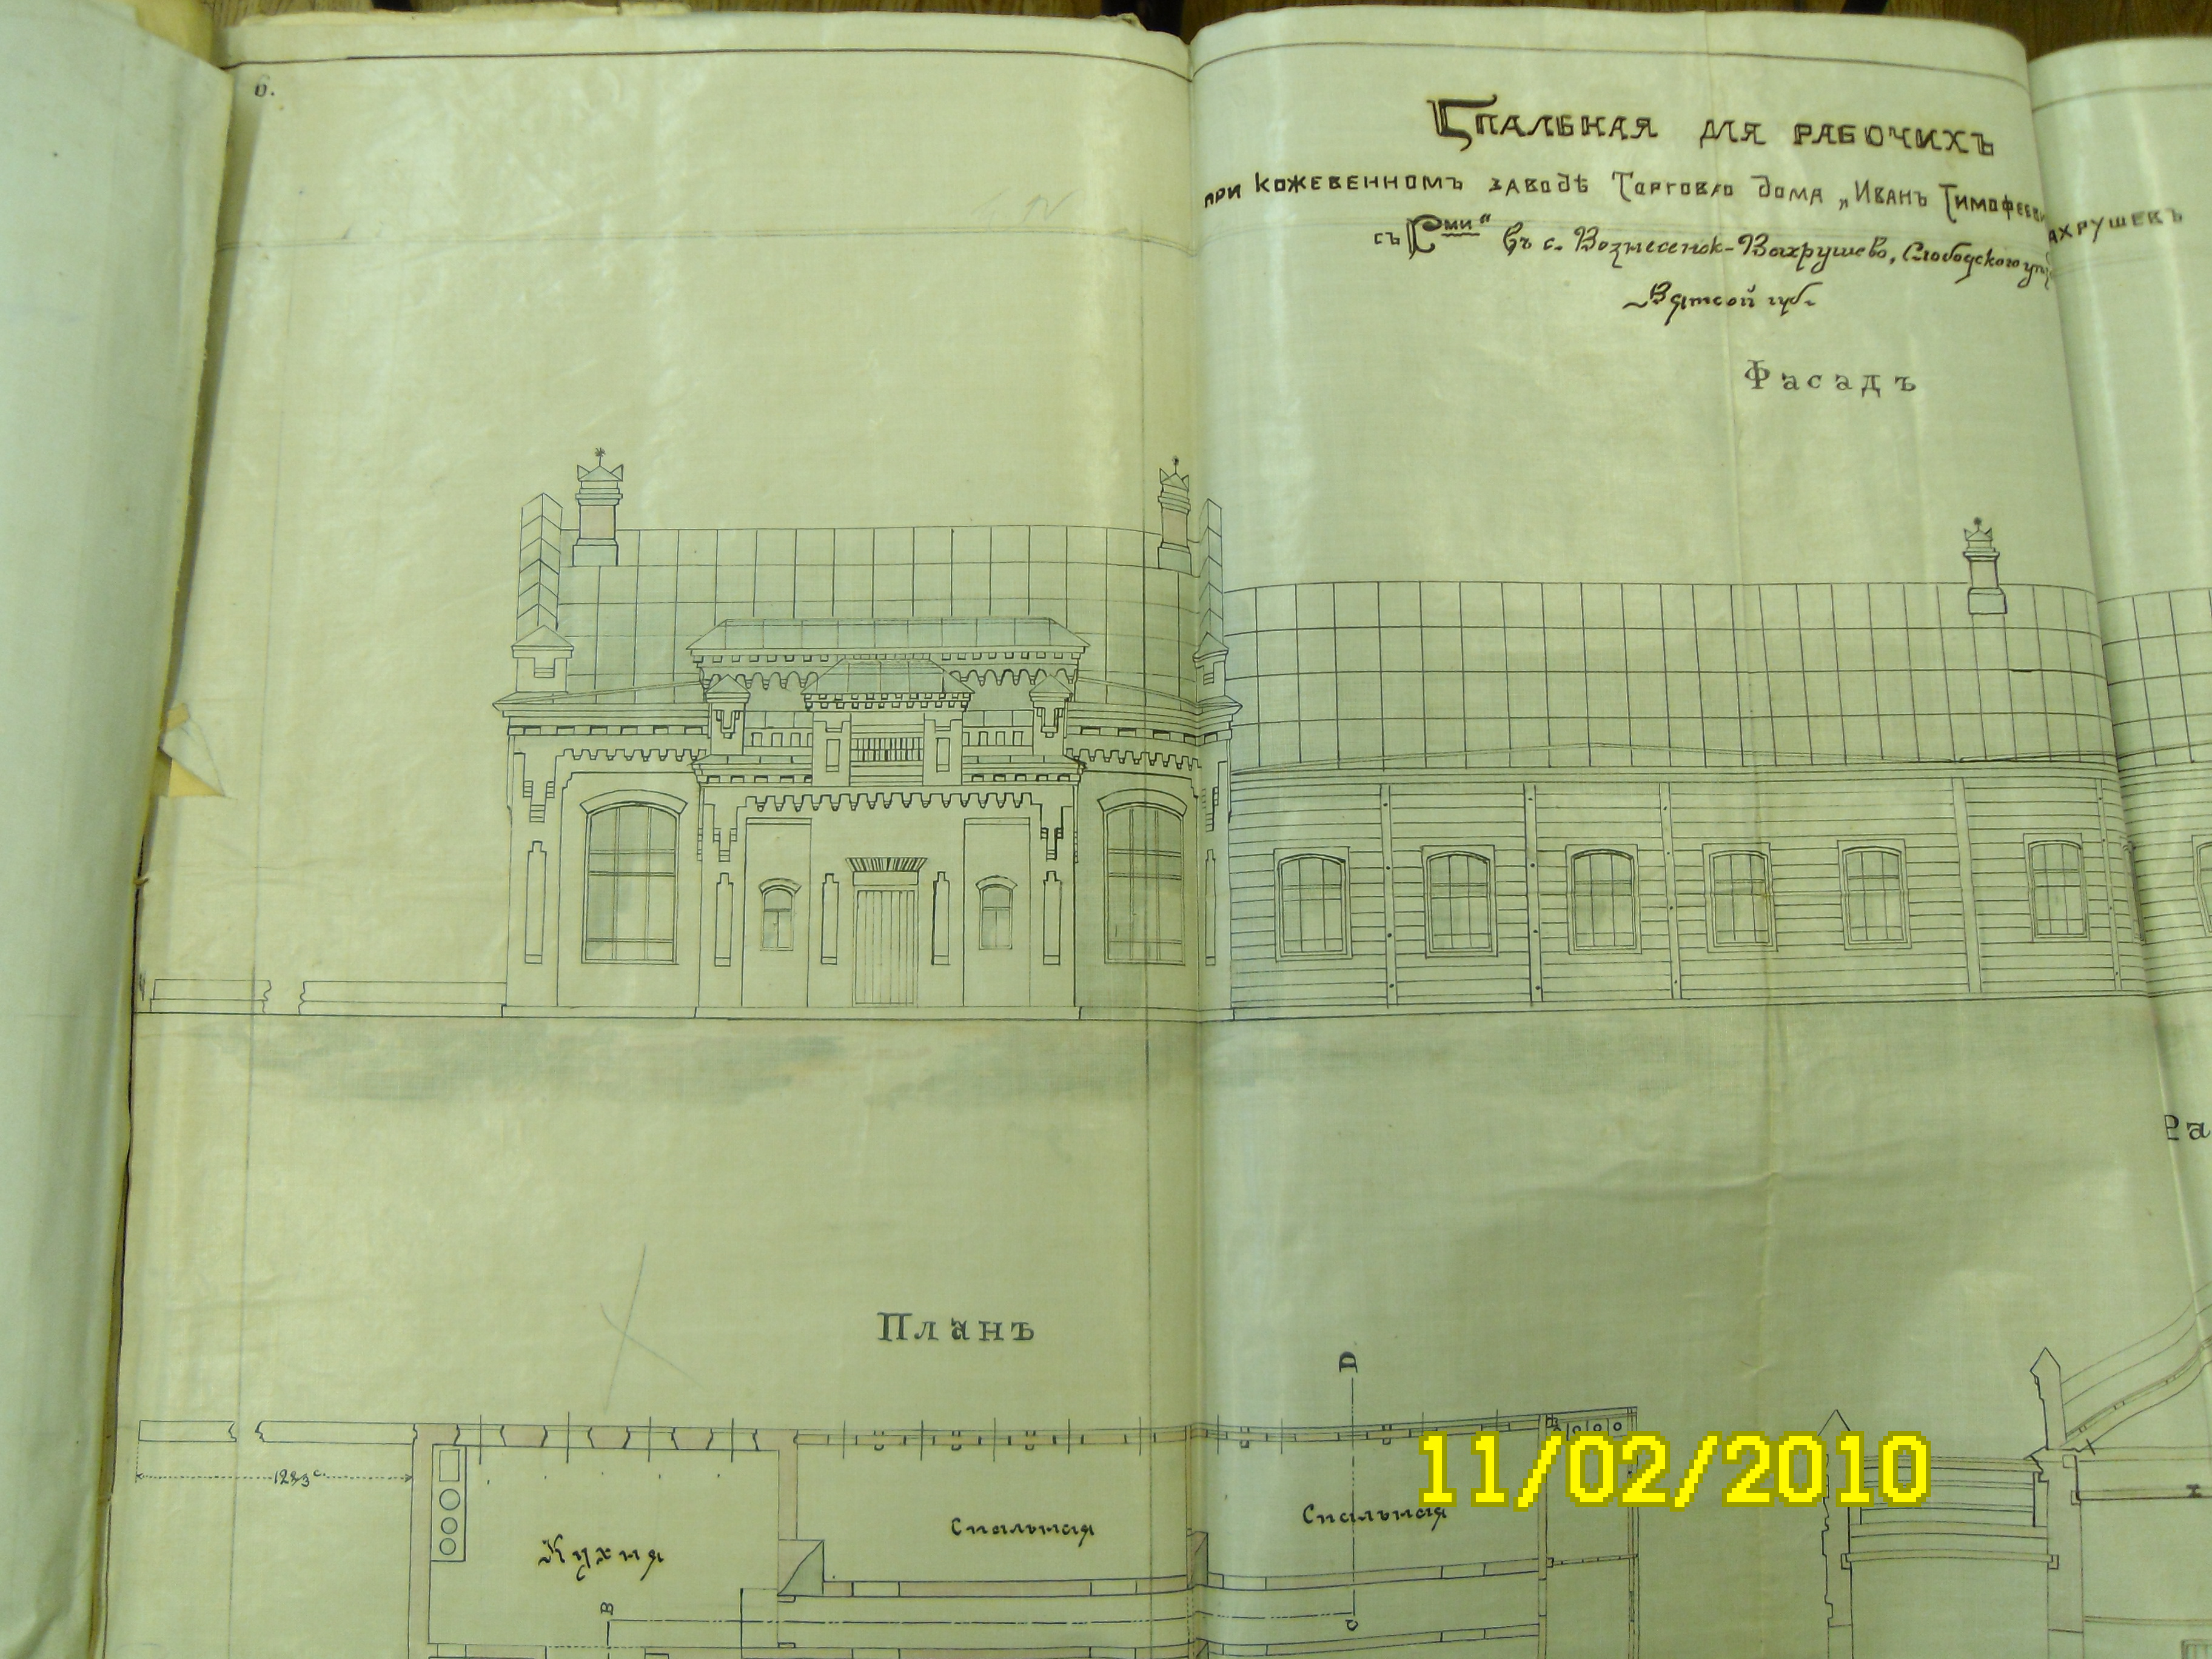 6.
Спальная для рабочихъ
при кожевенномъ заводѣ Торговаго дома „Иванъ Тимофееви ахрушевъ
съ Сми“ въ с. Вознесенск-Вахрушево, Слободского у
Вятской губ.
Фасадъ
Ра
Планъ
D
12 2/3 с.
Спальная
Спальная
Кухня
B
C
11/02/2010